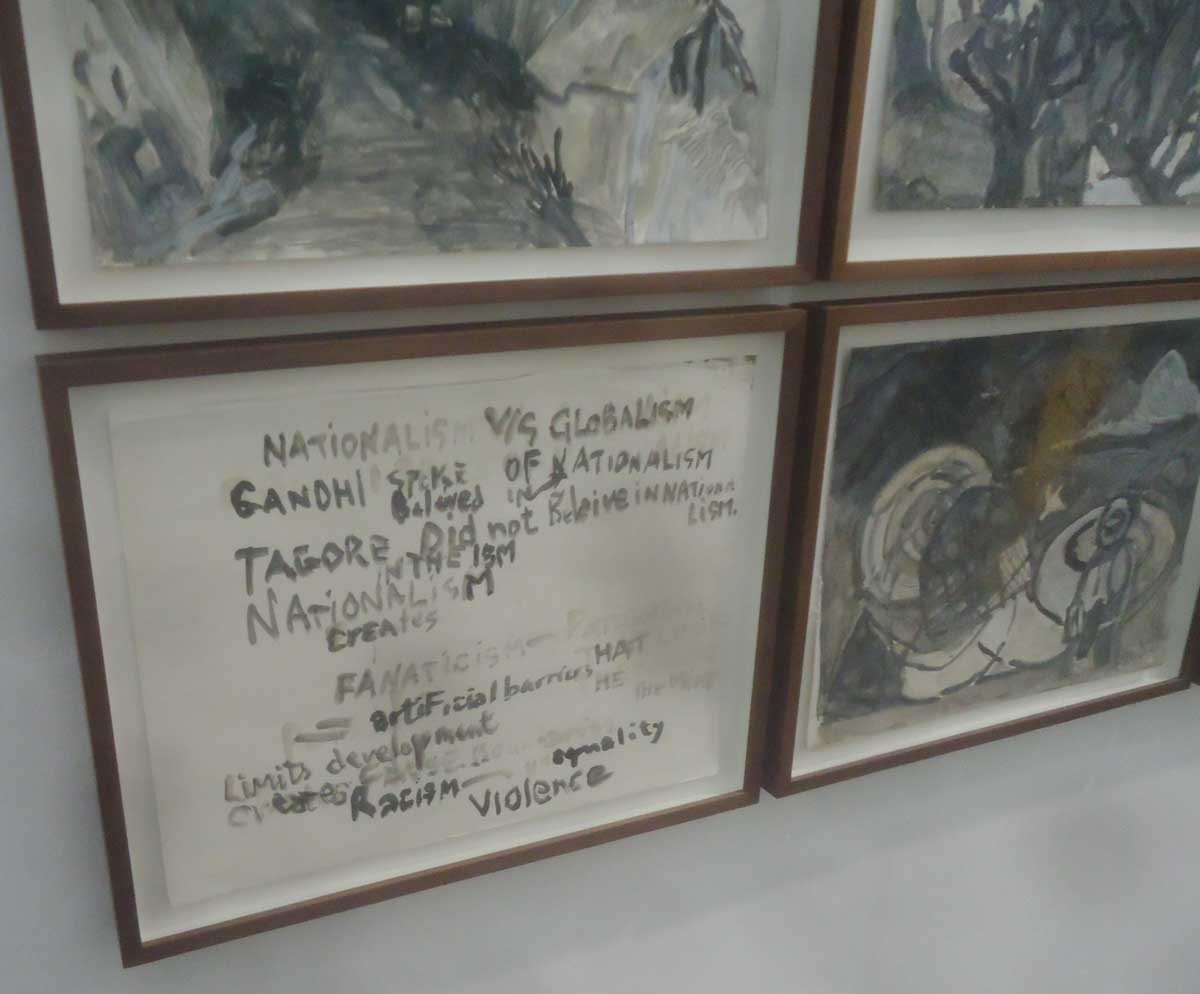 NATIONALISM V/S GLOBALISM
GANDHI SPOKE OF NATIONALISM
Beleives IN
TAGORE Did not Beleive in NATIONA
LISM.
IN THE ISM
NATIONALISM
CREATES
FANATICISM
= artiFicial barriers THAT
HE
Limits development
equality
Creates Racism — Violence